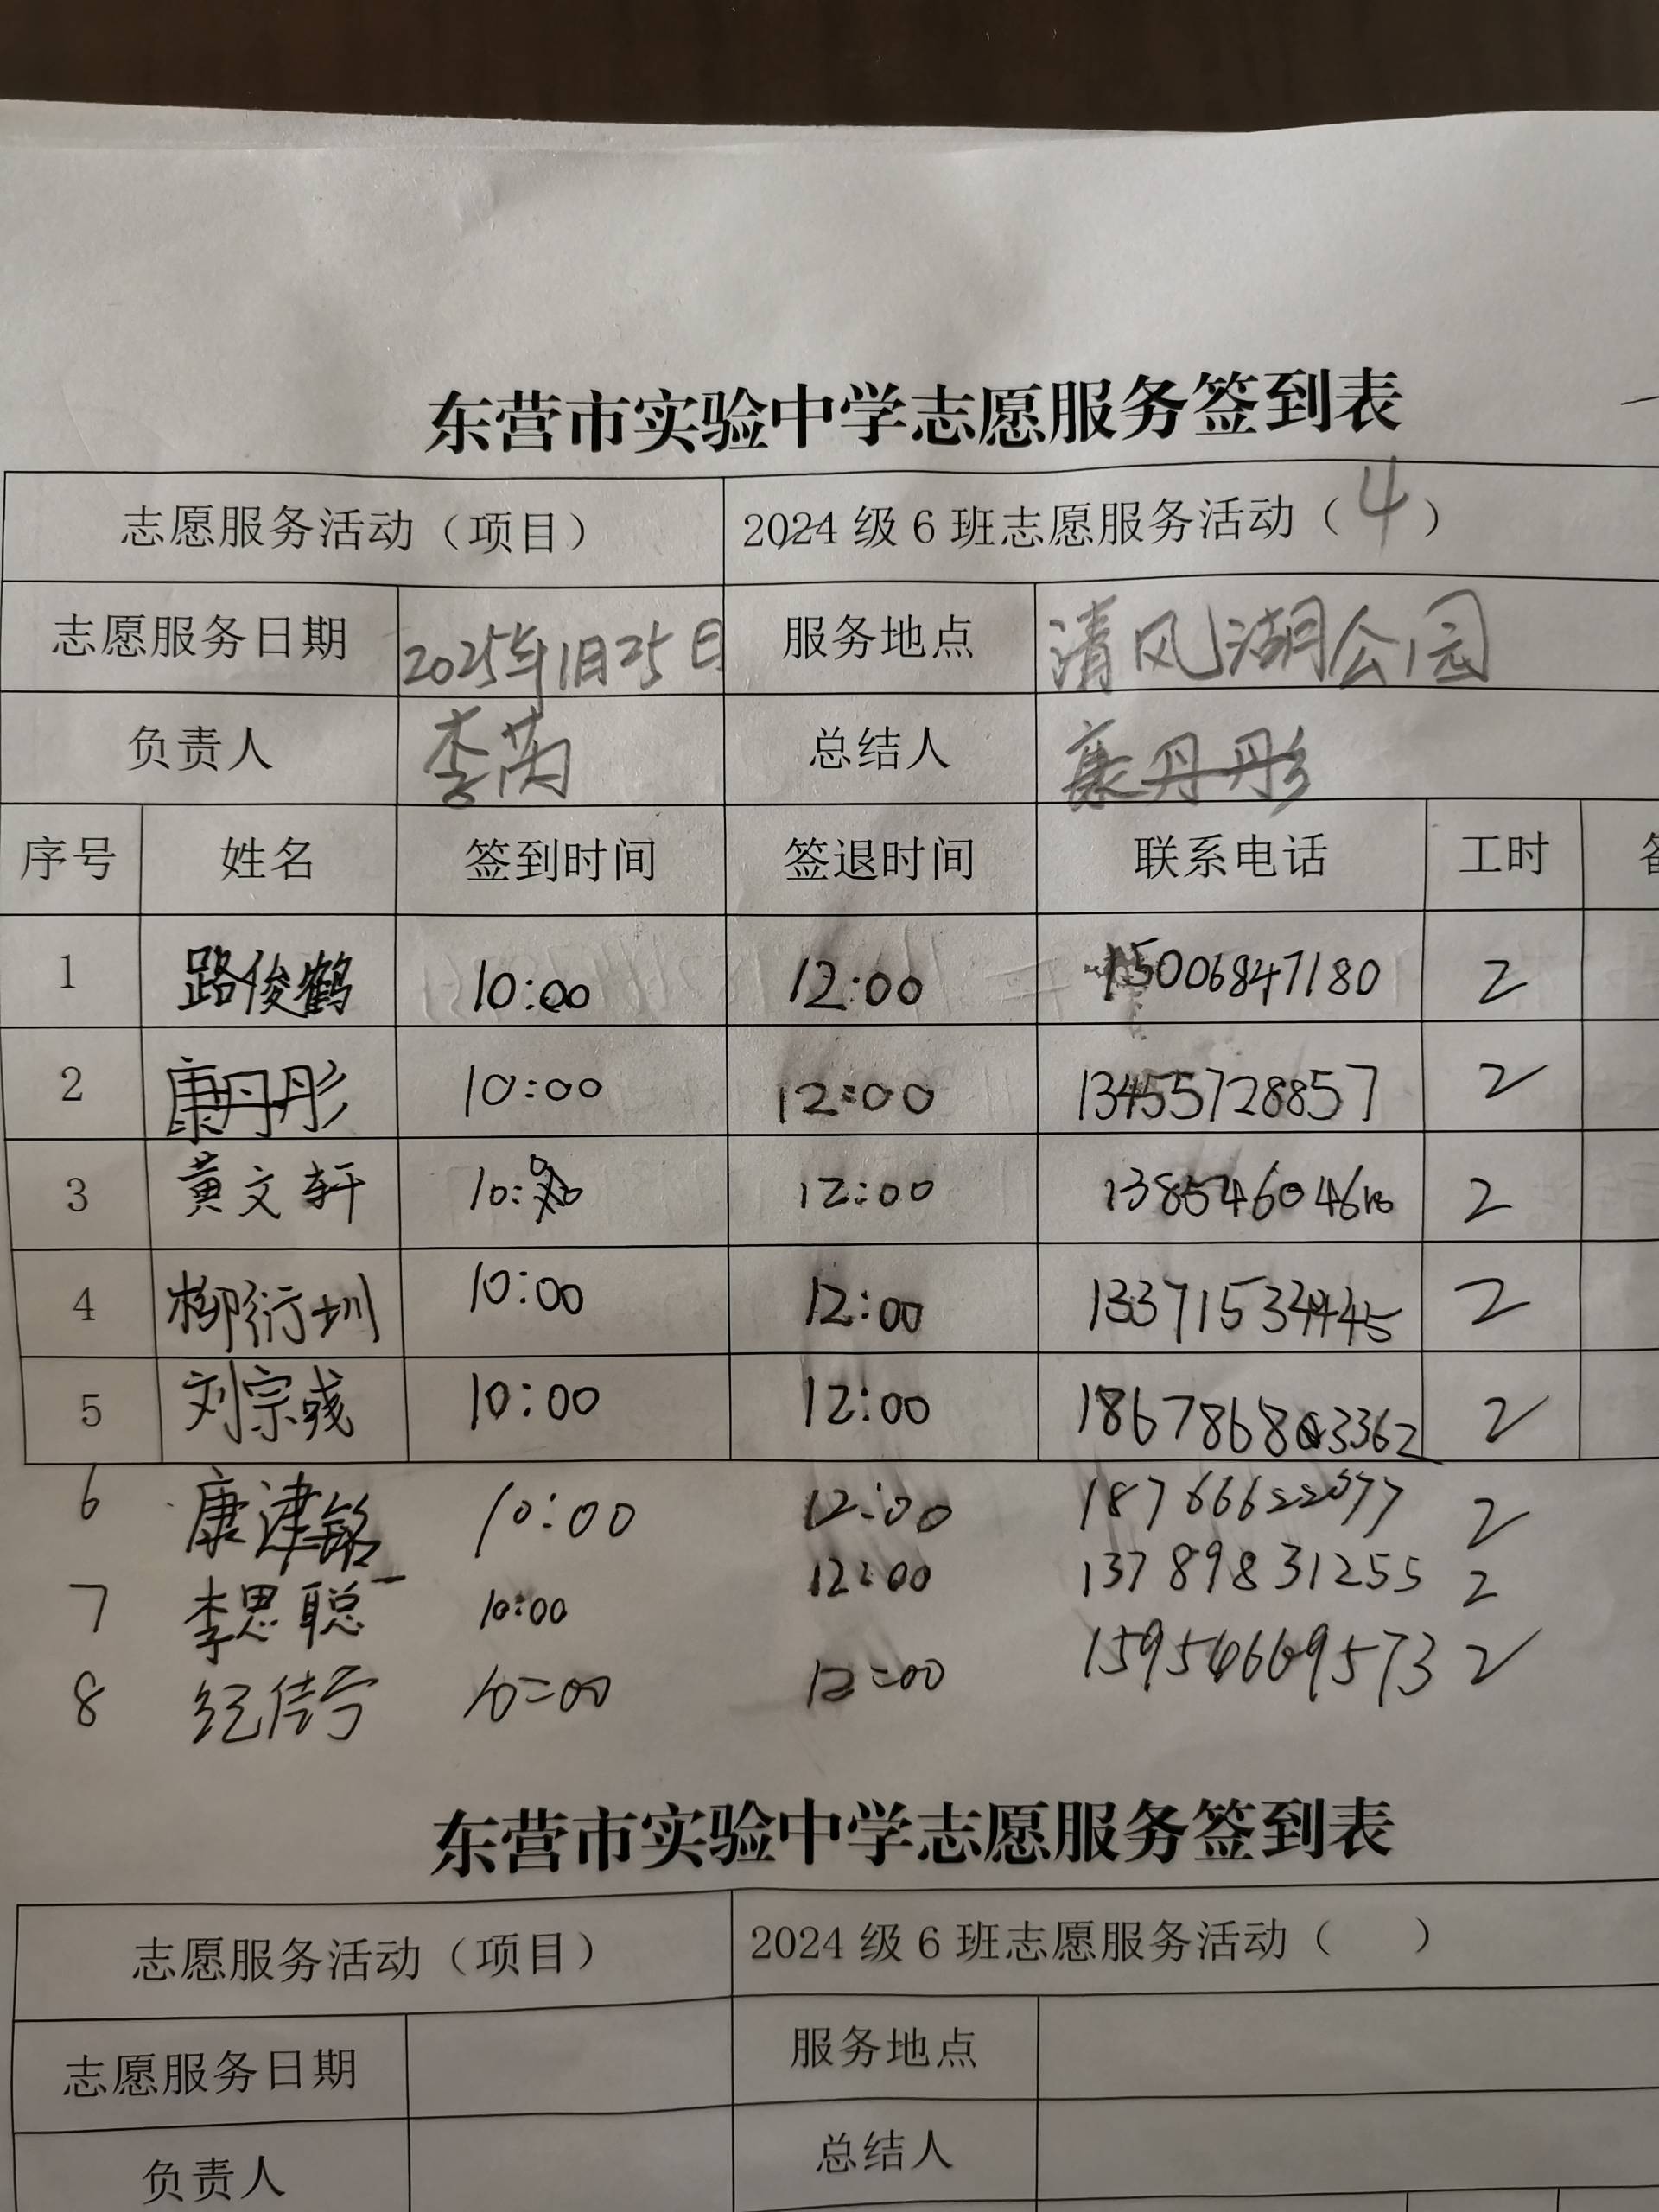 东营市实验中学志愿服务签到表
志愿服务活动（项目） 2024级6班志愿服务活动（4）
志愿服务日期 2025年1月25日 服务地点 清风湖公园
负责人 李芮 总结人 康丹彤
序号 姓名 签到时间 签退时间 联系电话 工时
1 路俊鹤 10:00 12:00 15006847180 2
2 康丹彤 10:00 12:00 13455728857 2
3 黄文轩 10:00 12:00 2
4 柳衍圳 10:00 12:00 2
5 刘宗彧 10:00 12:00 2
6 康津铭 10:00 12:00 18766622077 2
7 李思聪 10:00 12:00 13789831255 2
8 10:00 12:00 2
东营市实验中学志愿服务签到表
志愿服务活动（项目） 2024级6班志愿服务活动（ ）
志愿服务日期 服务地点
负责人 总结人